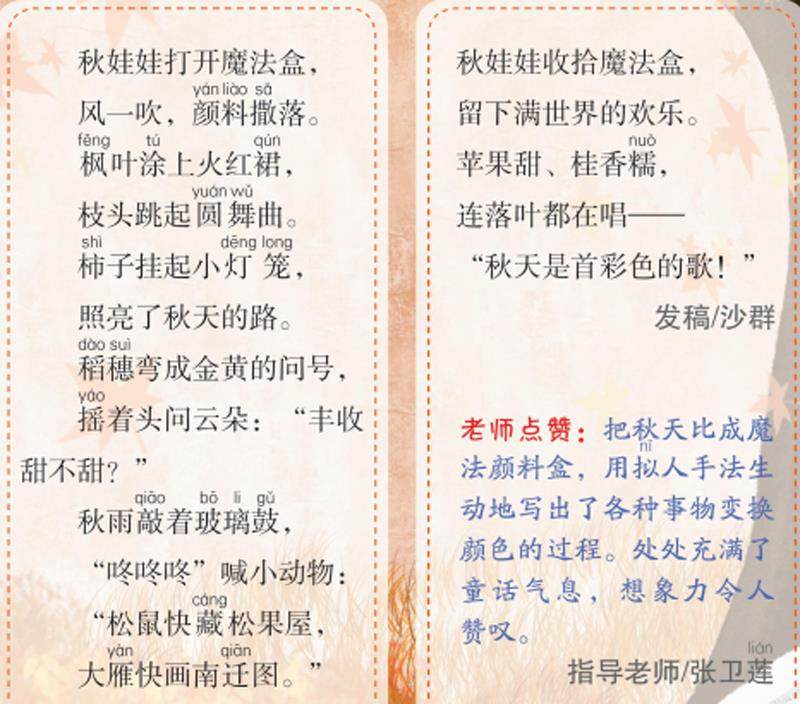 秋娃娃打开魔法盒，
yán liào sǎ
风一吹，颜料撒落。
fēng tú qún
枫叶涂上火红裙，
yuán wǔ
枝头跳起圆舞曲。
shì dēng long
柿子挂起小灯笼，
照亮了秋天的路。
dào suì
稻穗弯成金黄的问号，
yáo
摇着头问云朵：“丰收
甜不甜？”
qiāo bō li gǔ
秋雨敲着玻璃鼓，
“咚咚咚”喊小动物：
cáng
“松鼠快藏松果屋，
yàn qiān
大雁快画南迁图。”
秋娃娃收拾魔法盒，
留下满世界的欢乐。
nuò
苹果甜、桂香糯，
连落叶都在唱——
“秋天是首彩色的歌！”
发稿/沙群
老师点赞：把秋天比成魔
nǐ
法颜料盒，用拟人手法生
动地写出了各种事物变换
颜色的过程。处处充满了
童话气息，想象力令人
赞叹。
lián
指导老师/张卫莲